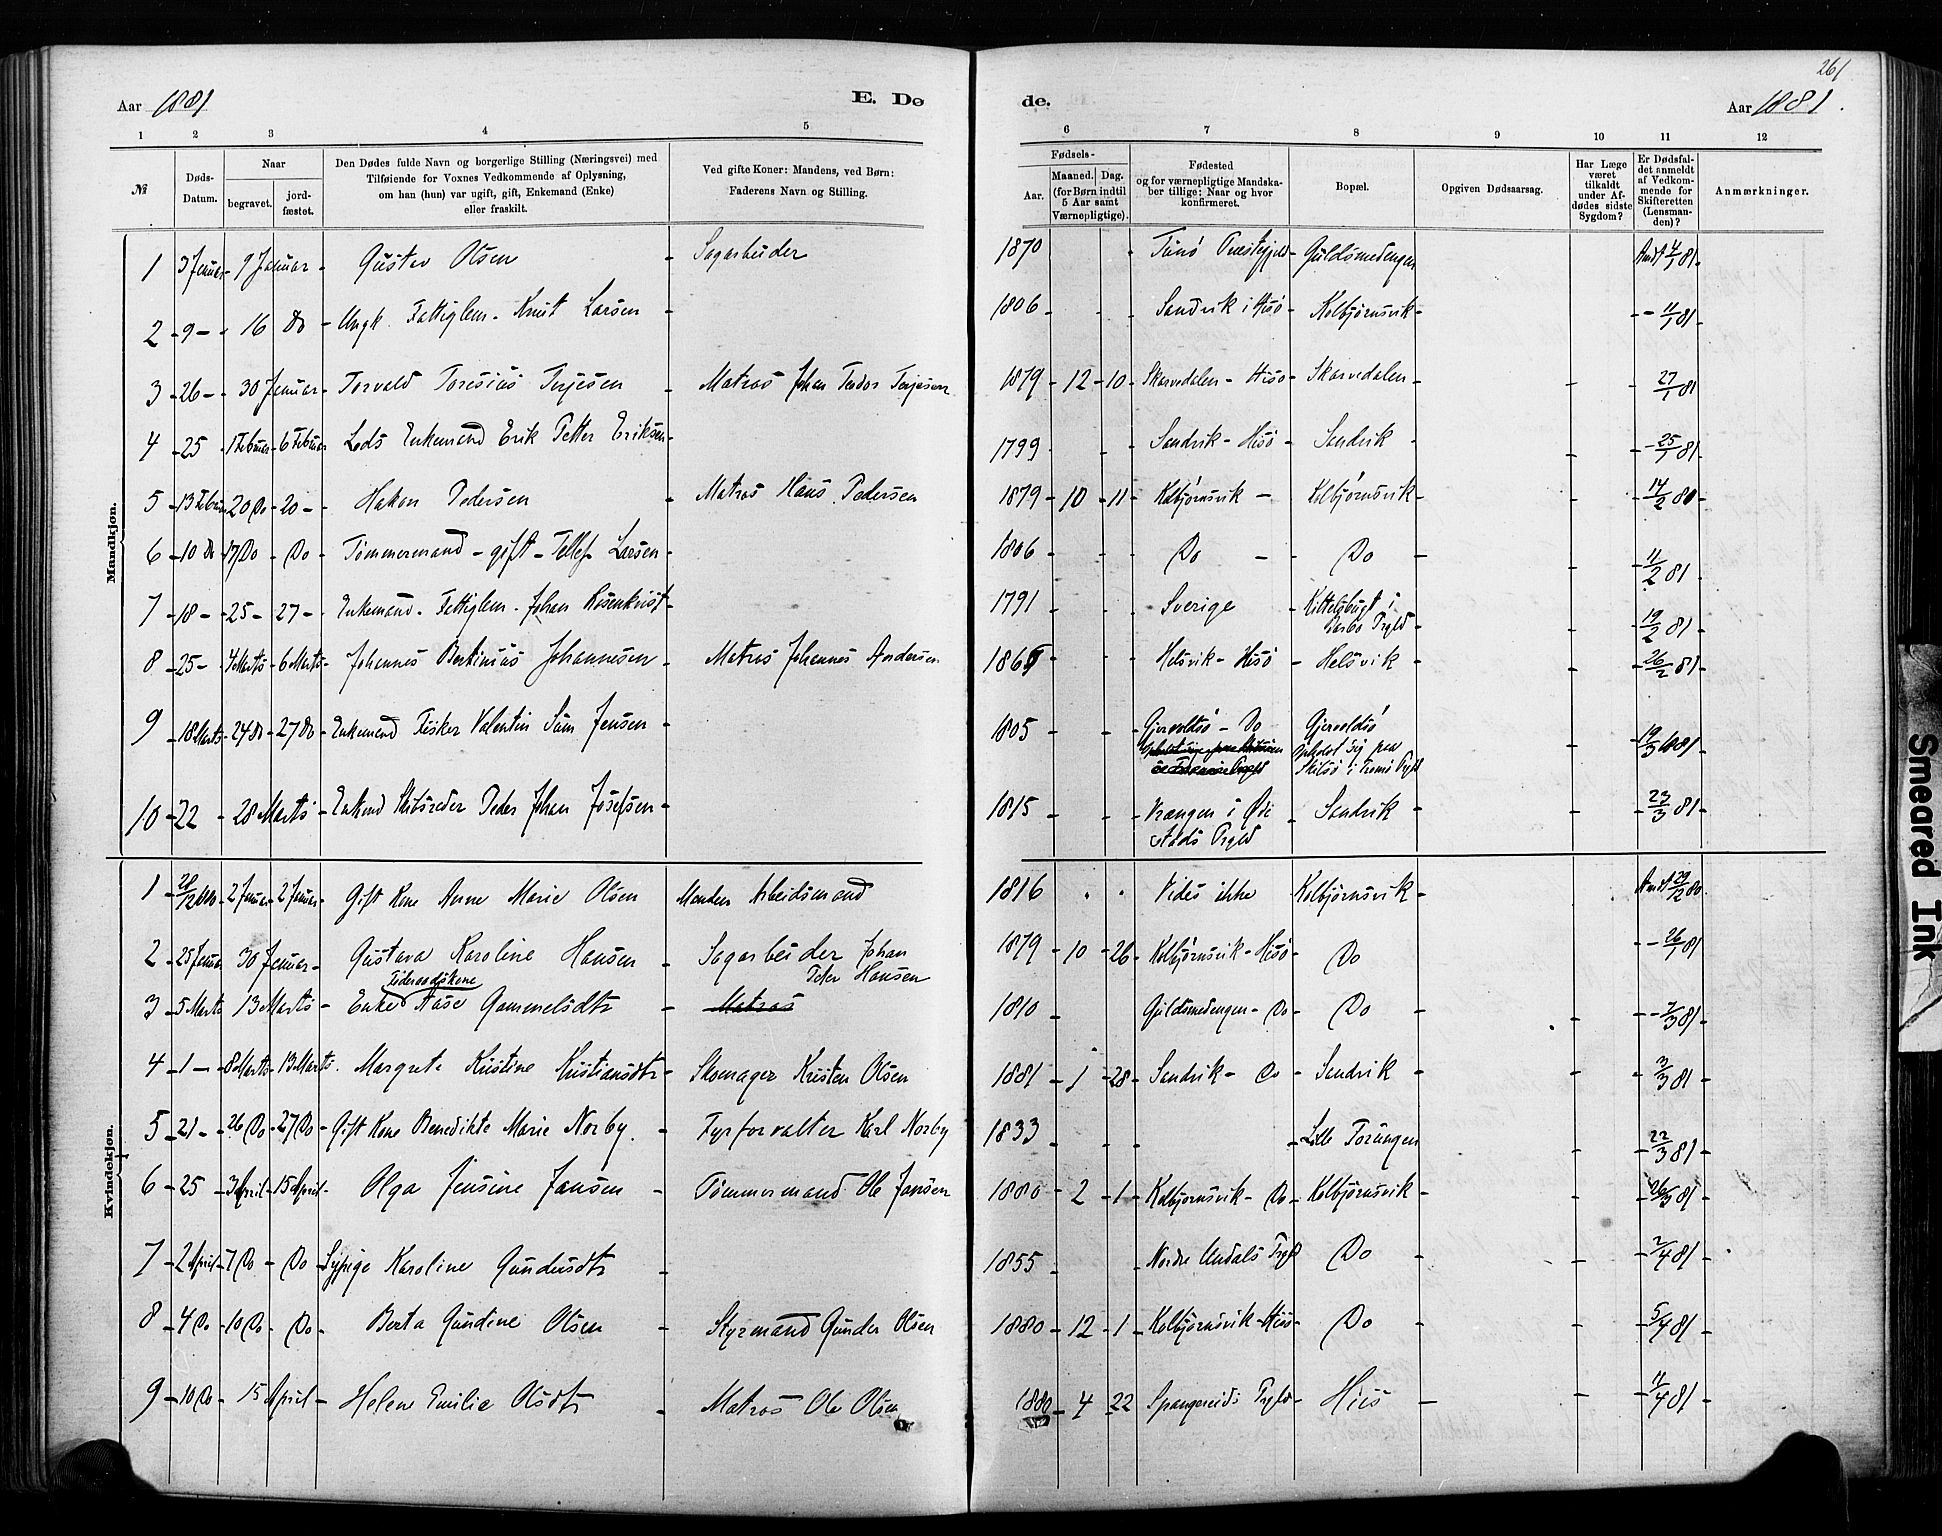 261
Aar 1881 E. Dø
de. Aar 1881.
1 2 3 4 5
6 7 8 9 10 11 12
№ Døds-Datum. Naar begravet. jordfæstet. Den Dødes fulde Navn og borgerlige Stilling (Næringsvei) med Tilføiende for Voxnes Vedkommende af Oplysning, om han (hun) var ugift, gift, Enkemand (Enke) eller fraskilt. Ved gifte Koner: Mandens, ved Børn: Faderens Navn og Stilling.
Fødsels- Aar. Maaned. Dag. (for Børn indtil 5 Aar samt Værnepligtige). Fødested og for værnepligtige Mandskaber tillige: Naar og hvor konfirmeret. Bopæl. Opgiven Dødsaarsag. Har Læge været tilkaldt under Afdødes sidste Sygdom? Er Dødsfaldet anmeldt af Vedkommende for Skifteretten (Lensmanden)? Anmærkninger.
Mandkjøn.
1 3 Januar 9 Januar Gustav Olsen Sagarbeider 1870 Præstegjeld Guldsmedengen Anm 4/1 81
2 9 16 Do Ungk. Fattiglem. Knut Larsen 1806 Sandvik i Hisø Kolbjørnsvik 11/1 81
3 26 30 Januar Torvald Toresius Terjesen Matros Johan Teodor Terjesen 1879 12 10 Skarvedalen - Hisø Skarvedalen 27/1 81
4 25 1 Februar 6 Februar Lods Enkemand Erik Petter Eriksen 1799 Sandvik - Hisø Sandvik 25/1 81
5 13 Februar 20 Do 20 Hakon Pedersen Matros Hans Pedersen 1879 10 11 Kolbjørnsvik Kolbjørnsvik 14/2 80
6 10 Do 17 Do Do Tømmermand - gift - Tellef Larsen 1806 Do Do 11/2 81
7 18 25 27 Enkemand. Fattiglem. Johan Rosenkvist 1791 Sverige Kittelsbugt i Barbo Prgld 19/2 81
8 25 4 Marts 6 Marts Johannes Bertinius Johannesen Matros Johannes Andersen Helsvik - Hisø Helsvik 26/2 81
9 18 Marts 24 Do 27 Do Enkemand Fisker Valentin Sam Jensen 1805 Gjervoldsø - Do Gjervoldsø opholdt sig paa Skilsø i Tromø Prgld 19/3 1881
10 22 28 Marts Enkemd Skibsreder Peder Johan Josefsen 1815 Vrængen i Øie Prgld Sandvik 23/3 81
Kvindekjøn.
1 28/12 1880 2 Januar 2 Januar Gift Kone Anne Marie Olsen Manden Arbeidsmand 1816 Vides ikke Kolbjørnsvik Anm 29/12 80
2 25 Januar 30 Januar Gustava Karoline Hansen Sagarbeider Johan Peter Hansen 1879 10 26 Kolbjørnsvik - Hisø Do 26/1 81
3 5 Marts 13 Marts Enke Føderaadskone Aase Gammelsdtr Matros 1810 Guldsmedengen - Do Do 7/3 81
4 1 8 Marts 13 Marts Margrete Kristine Kristiansdtr Skomager Kristen Olsen 1881 1 28 Sandvik - Do Sandvik 3/3 81
5 21 26 Do 27 Do Gift Kone Benedikte Marie Norby. Fyrforvalter Karl Norby 1833 Lille Torungen 22/3 81
6 25 3 April 15 April Olga Jensine Jansen Tømmermand Ole Jansen 1880 2 1 Kolbjørnsvik - Do Kolbjørnsvik 26/3 81
7 2 April 7 Do Do Sypige Karoline Gundersdtr 1855 Nordre Undals Prgld Do 2/4 81
8 4 Do 10 Do Do Berta Gundine Olsen Styrmand Gunder Olsen 1880 12 1 Kolbjørnsvik - Hisø Do 5/4 81
9 10 Do 15 April Helene Emilie Olsdtr Matros Ole Olsen 1880 4 22 Spangereids Prgld Hisø 11/4 81
Smeared Ink